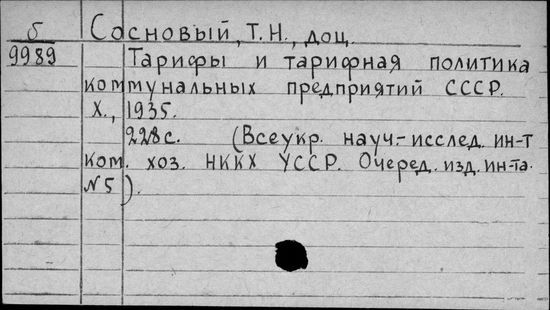 б Сосновый, Т.Н., доц.
9989 Тарифы и тарифная политика
коммунальных предприятий СССР.
Х., 1935.
228 с. (Всеукр. науч.-исслед. ин-т
ком. хоз. НККХ УССР. Очеред. изд. ин-та.
№5).